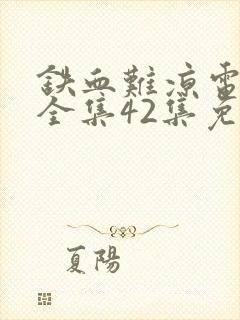 鉄血難涼電
全集42集免
夏陽